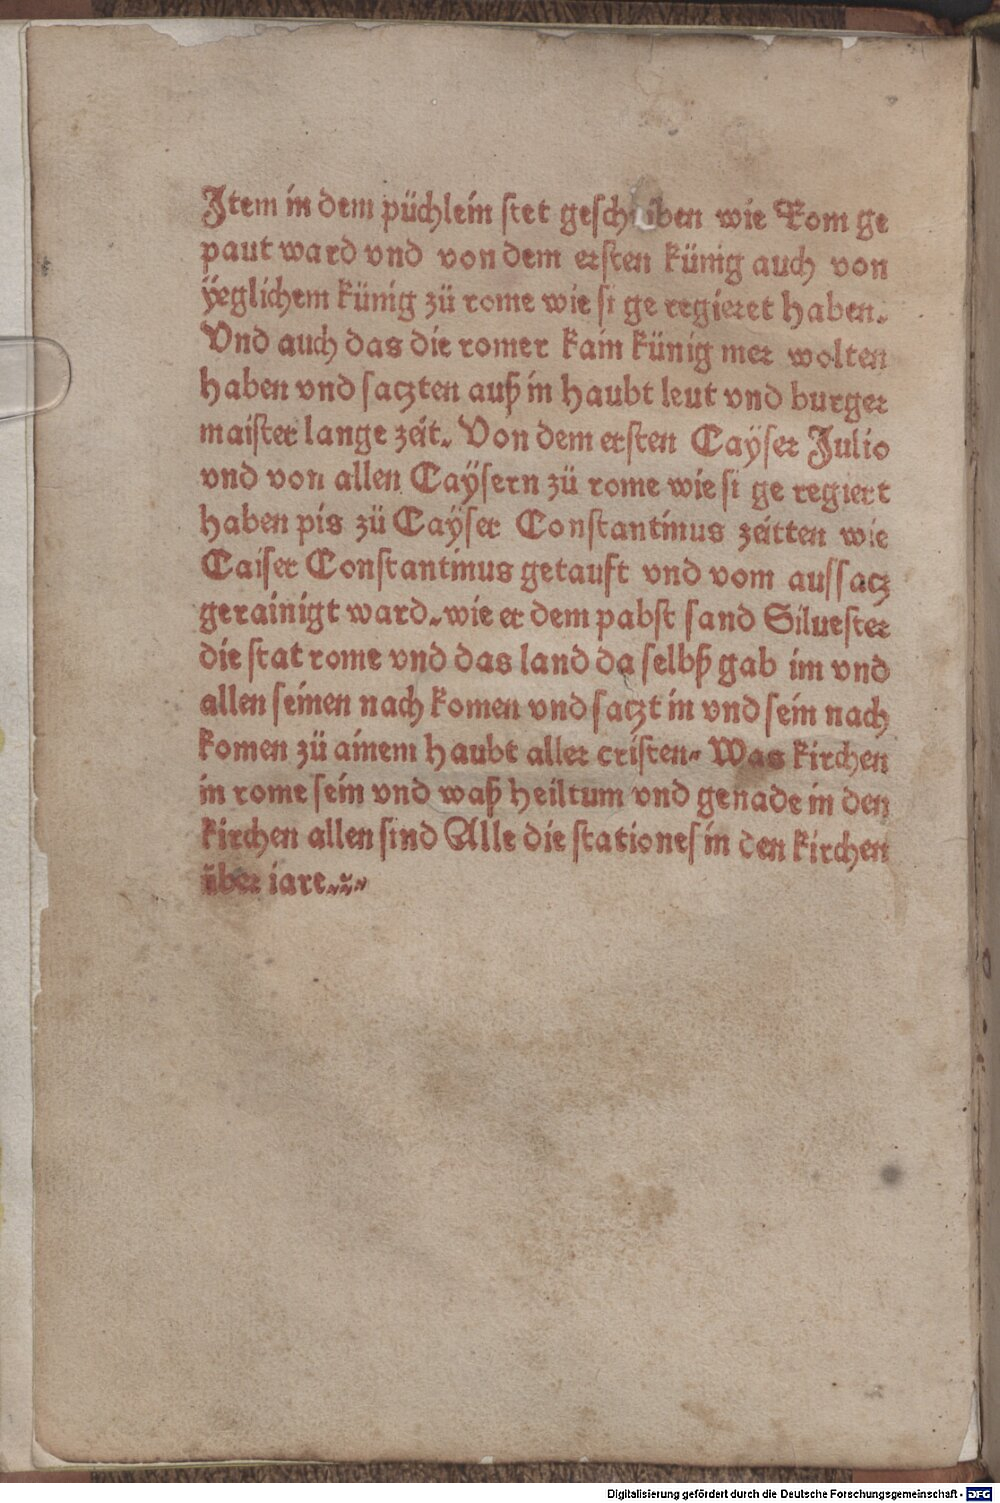 Item in dem püchlein stet geschriben wie Rom ge
paut ward vnd von dem ersten künig auch von
ÿeglichem künig zü rome wie si ge regieret haben.
Vnd auch das die romer kain künig mer wolten
haben vnd saczten auß in haubt leut vnd burger
maister lange zeit. Von dem ersten Caÿser Julio
vnd von allen Caÿsern zü rome wie si ge regiert
haben pis zü Caÿser Constantinus zeitten wie
Caiser Constantinus getauft vnd vom aussacz
gerainigt ward. wie er dem pabst sand Siluester
die stat rome vnd das land da selbß gab im vnd
allen seinen nach komen vnd saczt in vnd sein nach
komen zü ainem haubt aller cristen. Was kirchen
in rome sein vnd waß heiltum vnd genade in den
kirchen allen sind Alle die stationes in den kirchen
über iare.
Digitalisierung gefördert durch die Deutsche Forschungsgemeinschaft - DFG